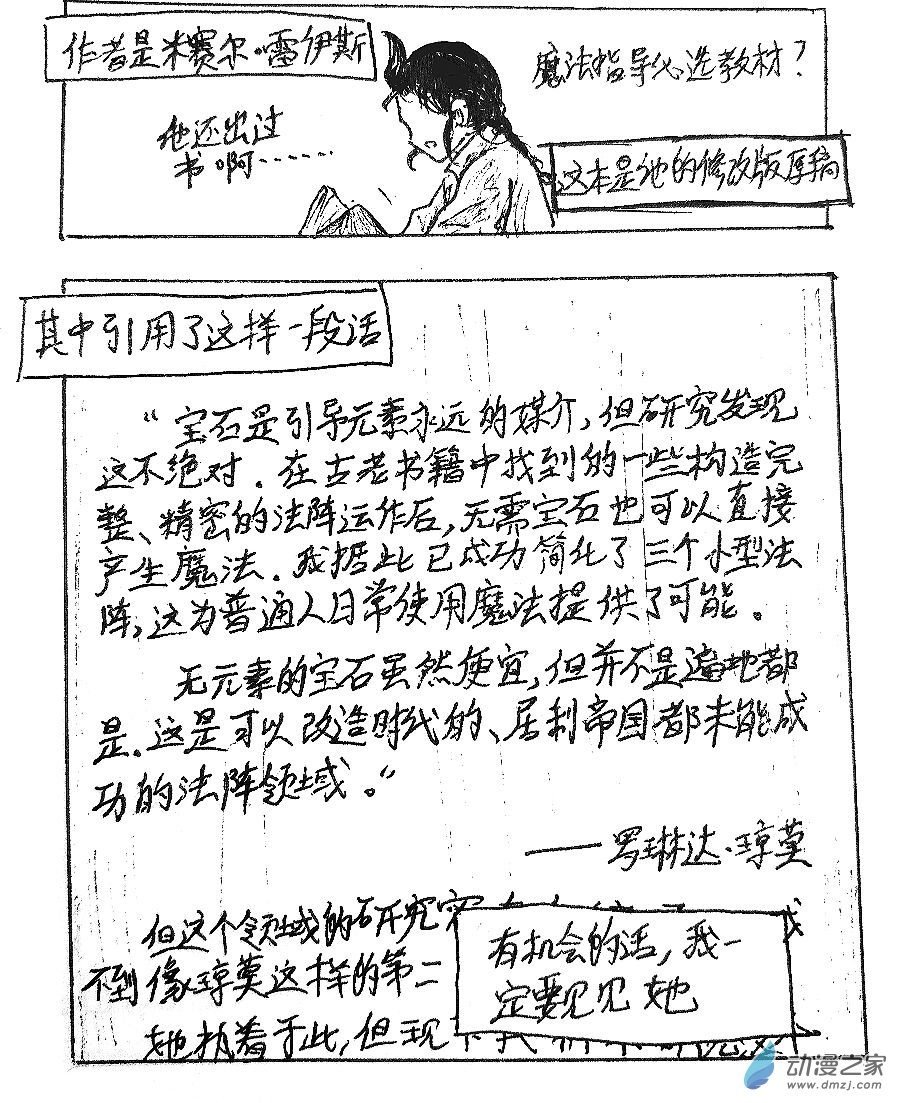 作者是米赛尔·雷伊斯
他还出过
书啊……
魔法指导必选教材？
这本是他的修改版原稿
其中引用了这样一段话
“宝石是引导元素永远的媒介，但研究发现
这不绝对．在古老书籍中找到的一些构造完
整、精密的法阵运作后，无需宝石也可以直接
产生魔法．我据此已成功简化了三个小型法
阵，这为普通人日常使用魔法提供了可能。
无元素的宝石虽然便宜，但并不是遍地都
是．这是可以改造时代的、居利帝国都未能成
功的法阵领域。”
——罗琳达·琼莫
但这个领域的研究
不到像琼莫这样的第二
她执着于此，但现
有机会的话，我一
定要见见她
动漫之家
www.dmzj.com